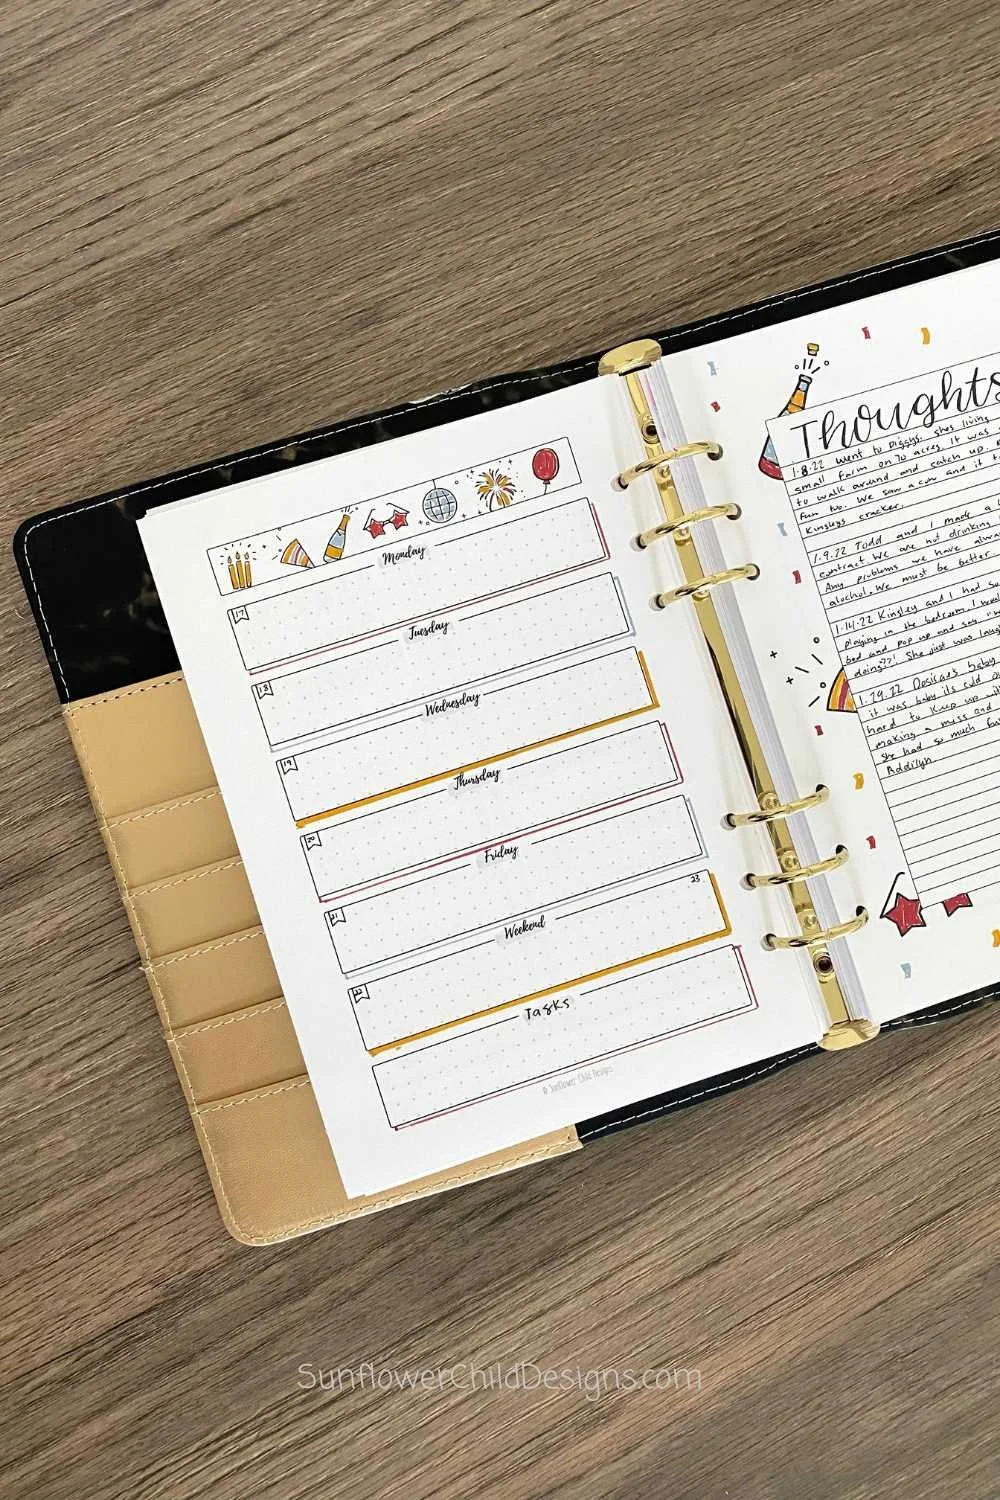 Monday
17
Tuesday
18
Wednesday
19
Thursday
20
Friday
21
Weekend
23
22
Tasks
© Sunflower Child Designs
Thoughts
1.8.22 Went to Piggys. Shes living
small farm on 70 acres. It was
to walk around and catch up.
fun too. We saw a cow and it
Kinsleys cracker.
1.9.22 Todd and I made a
contract. We are not drinking
Any problems we have alwa
alochol. We must be better
1.14.22 Kinsley and I had su
playing in the bedroom. I woul
bed and pop up and say "w
doing??! She just was laug
1.29.22 Desirae's baby
it was baby its cold
hard to keep up wi
making a mess and
she had so much fu
Addilyn
SunflowerChildDesigns.com